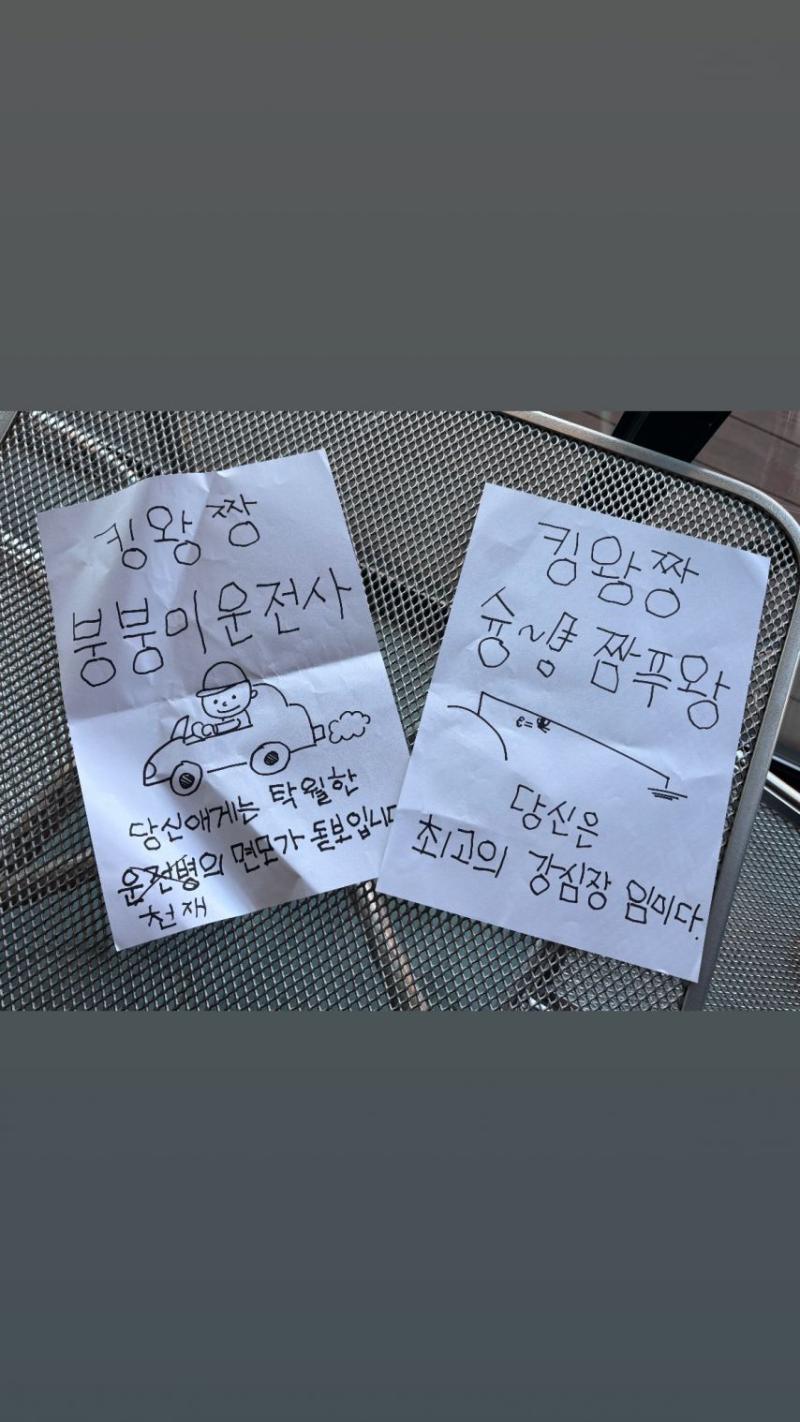 킹왕짱
붕붕미운전사
당신애게는 탁월한
운전병의 면모가 돋보입니다
천재
킹왕짱
슝~먕 짬푸왕
당신은
최고의 강심장 임미다.